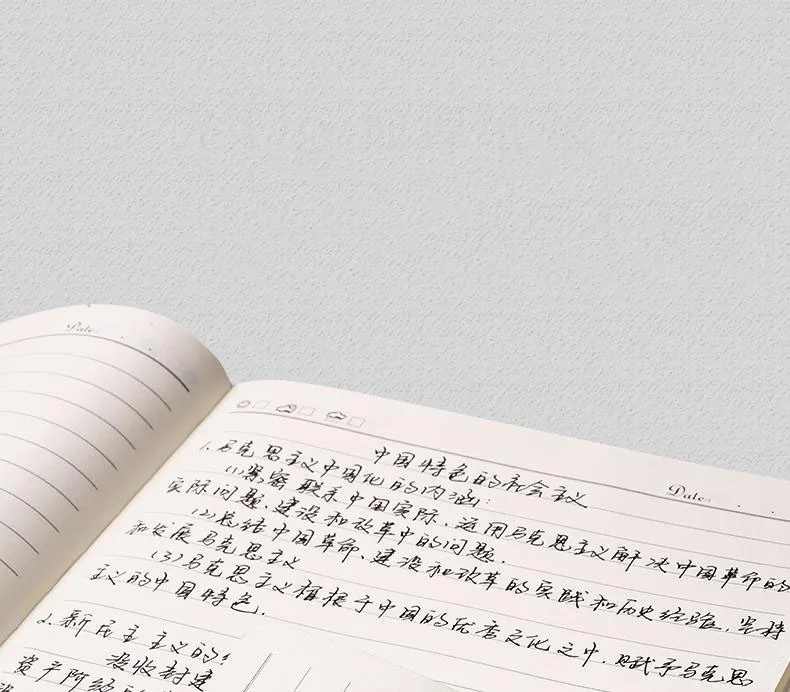 Date:
Date:
中国特色的社会主义
1.马克思主义中国化的内涵:
(1)紧密联系中国实际,运用马克思主义解决中国革命的
实际问题,建设和改革中的问题.
(2)总结中国革命、建设和改革的实践和历史经验,坚持
和发展马克思主义
(3)马克思主义植根于中国的优秀文化之中,赋予马克思
主义的中国特色.
2.新民主主义的
没收封建
资产阶级